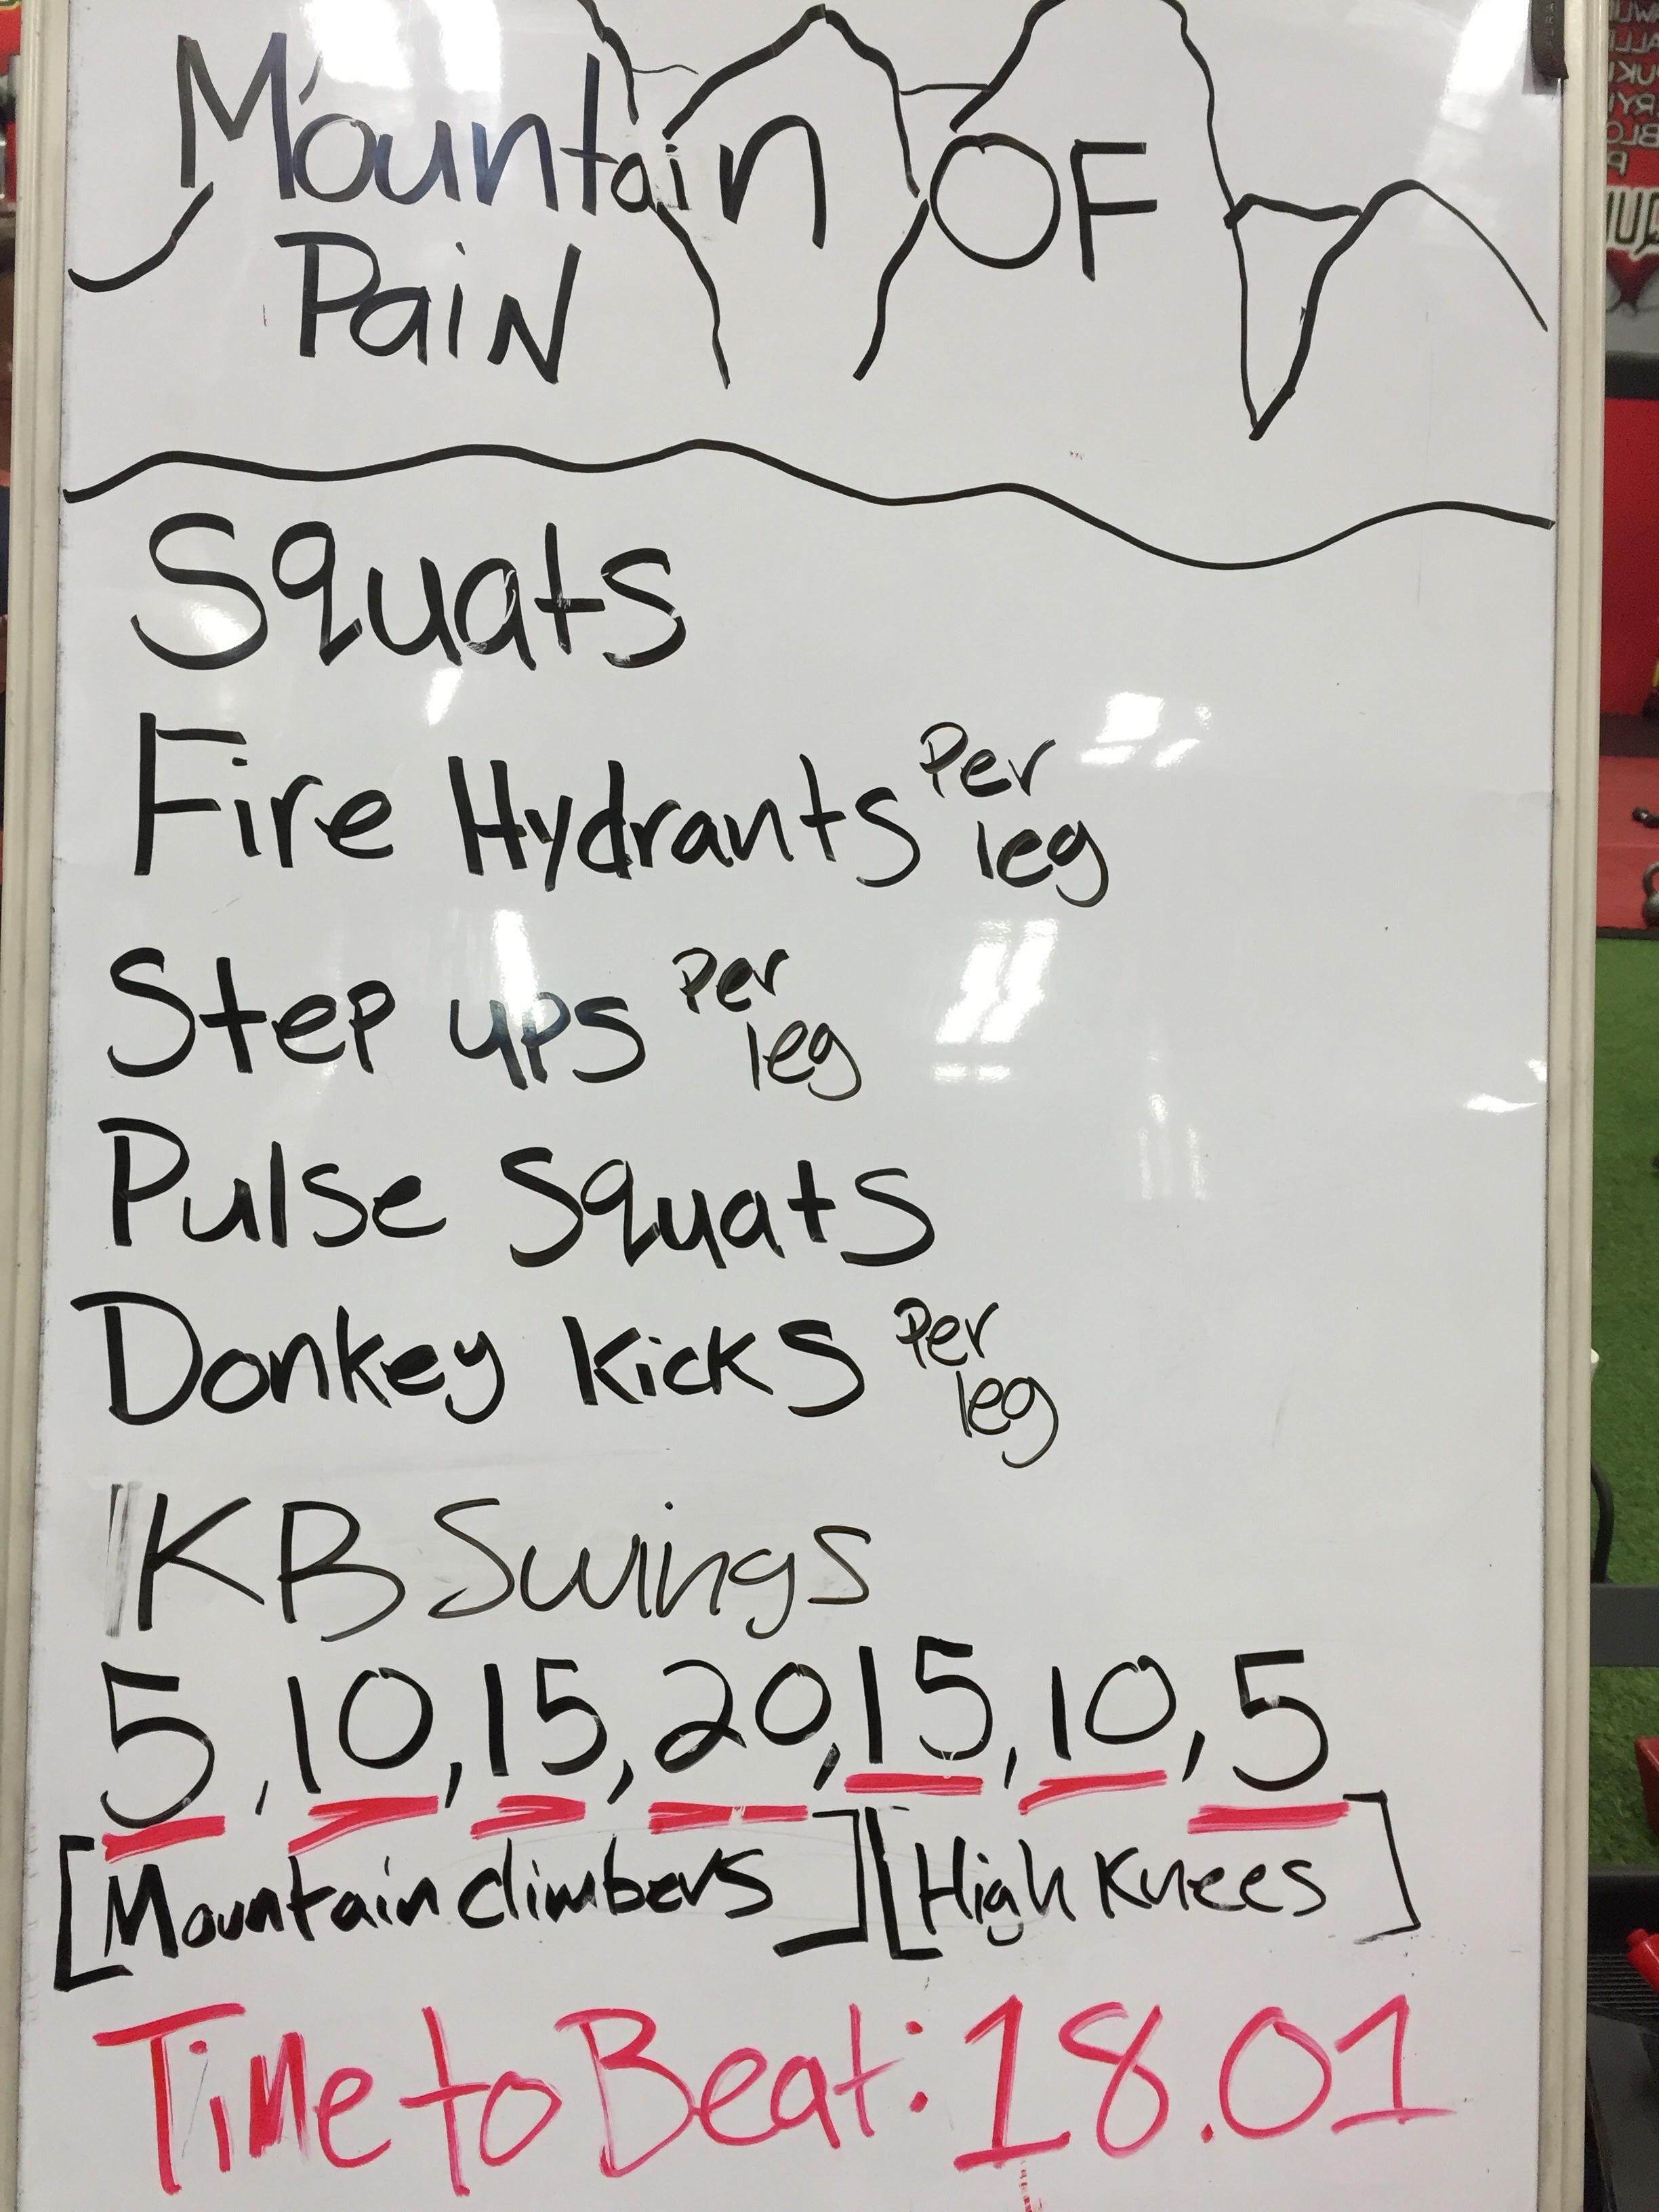 Mountain OF
Pain
Squats
Fire Hydrants Per leg
Step ups Per leg
Pulse Squats
Donkey Kicks Per leg
KB Swings
5, 10, 15, 20, 15, 10, 5
[Mountain climbers] [High Knees]
Time to Beat: 18.01